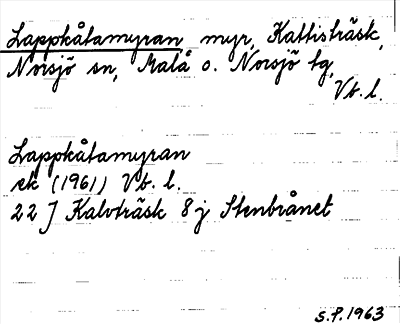 Lappkåtamyran, myr, Kattisträsk,
Norsjö sn, Malå o. Norsjö tg,
Vb. l.
Lappkåtamyran
ek (1961) Vb. l.
22 J Kalvträsk 8 j Stenbrånet
S.P. 1963